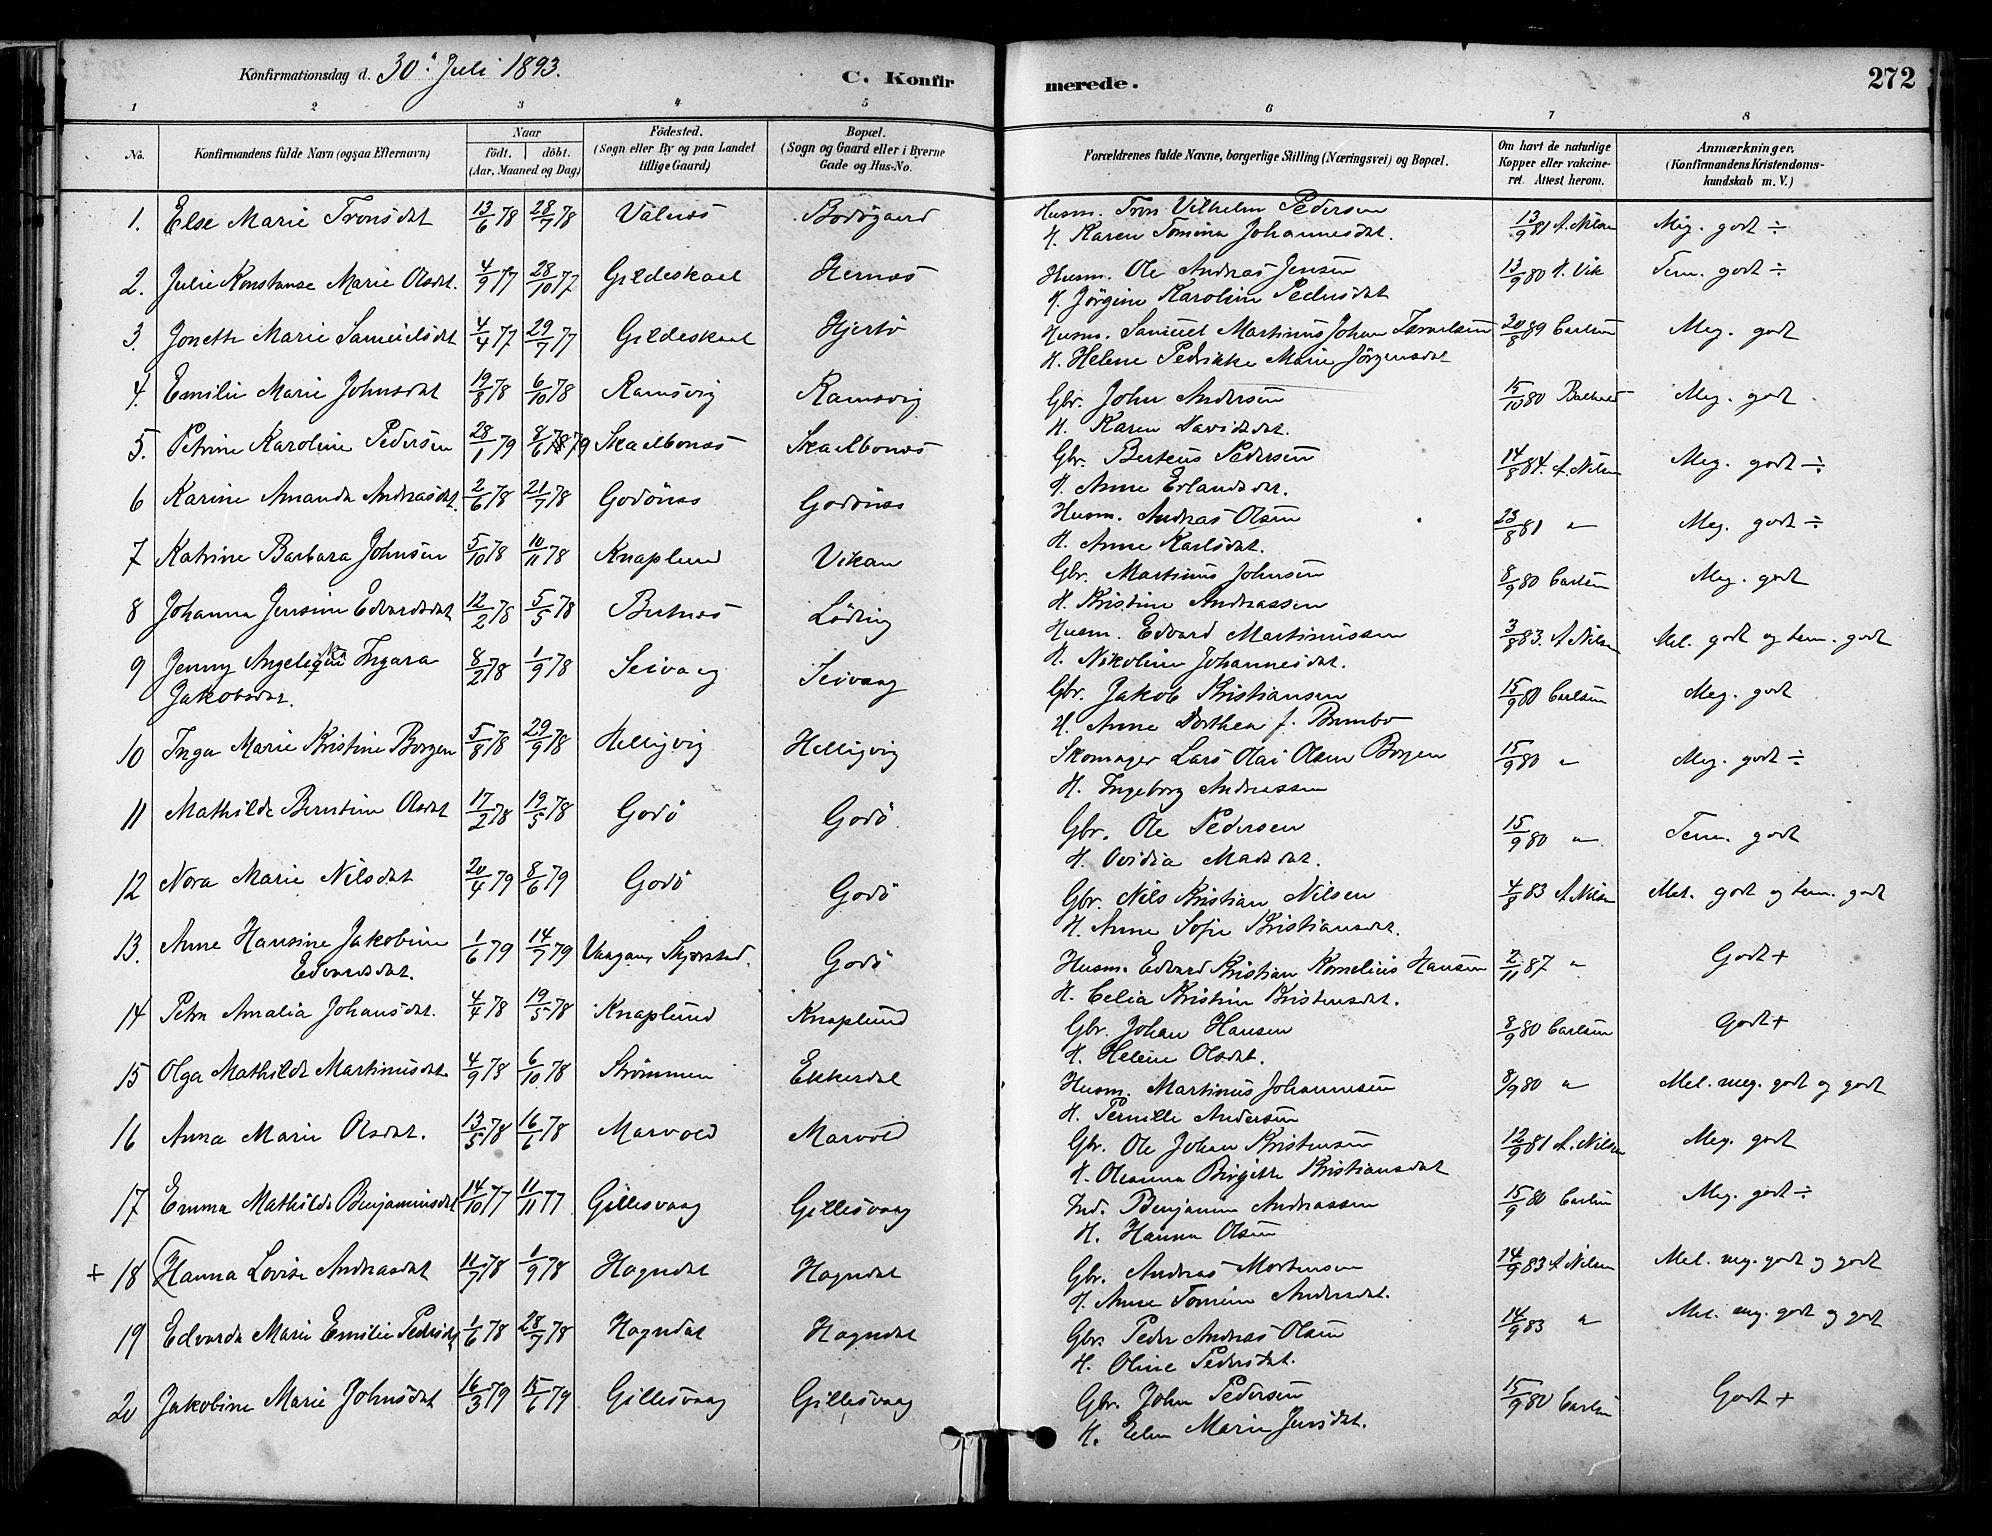 Konfirmationsdag d. 30' Juli 1893.
C. Konfirmerede.
272
1 2 3 4 5 6 7 8
No. Konfirmandens fulde Navn (ogsaa Efternavn) Naar født. døbt. (Aar, Maaned og Dag) Fødested. (Sogn eller By og paa Landet tillige Gaard) Bopæl. (Sogn og Gaard eller i Byerne Gade og Hus-No. Forældrenes fulde Navne, borgerlige Stilling (Næringsvei) og Bopæl. Om havt de naturlige Kopper eller vakcineret. Attest herom. Anmærkninger. (Konfirmandens Kristendomskundskab m. V.)
1. Else Marie Tronsdat 13/6 78 28/7 78 Valnes Bodøgaard Husm. Tron Vilhelm Pedersen 13/9 81 A. Nilsen Meg. godt ÷
H. Karen Tomina Johannesdat.
2. Julie Konstanse Marie Olsdat. 4/9 77 28/10 77 Gildeskaal Hernes Husm. Ole Andreas Jensen 13/9 80 H. Vik Tem. godt ÷
H. Jørgine Karoline Pedersdat
3. Jonette Marie Samuelsdat 4/4 77 29/7 77 Gildeskaal Hjertø Husm. Samuel Martinus Johan Ismaelsen 20/8 89 Carlsen Meg. godt
H. Helene Pedrikke Marie Jörgensdat
4. Emilie Marie Johnsdat 19/8 78 6/10 78 Ramsvig Ramsvig Gbr. John Andersen 15/10 80 Meg. godt
H. Karen Davidsdat.
5. Petrine Karoline Pedersen 28/1 79 8/6 79 Skaelbones Skaelbones Gbr. Berteus Pedersen 14/8 84. A. Nilsen Meg. godt ÷
H. Anne Erlandsdat.
6 Karine Amanda Andreasdat. 2/6 78 21/7 78 Godönes Godönes Husm. Andreas Olsen 23/8 81 " Meg. godt ÷
H. Anne Karlsdat.
7 Katrine Barbara Johnsen 5/10 78 10/11 78 Knaplund Vikan Gbr. Martinus Johnsen 8/9 80 Carlsen Meg. godt
H. Kristine Andreassen
8 Johanna Jensine Edvardsdat 12/2 78 5/5 78 Bertnes Löding Husm. Edvard Martinussen 3/8 83. A. Nilsen Mel. godt og tem. godt
H. Nikoline Johannesdat.
9 Jenny Angelique Ingara 8/2 78 1/9 78 Seivaag Seivaag Gbr. Jakob Kristiansen 15/9 80 Carlsen Meg. godt
Jakobsdat. H. Anne Dorthea f. Brumbo
10 Inga Marie Kristine Borgen 5/8 78 29/9 78 Helligvig Helligvig Skomager Lars Olai Olsen Borgen 15/9 80 " Meg. godt ÷
H. Ingeborg Andreassen
11 Mathilde Berntine Olsdat 17/2 78 19/5 78 Godö Godö. Gbr. Ole Pedersen 15/9 80 " Tem. godt
H. Ovidia Madsdat.
12 Nora Marie Nilsdat 20/4 79 8/6 79 Godö Godö Gbr. Nils Kristian Nilsen 4/8 83 A. Nilsen Mel. godt og tem. godt
H. Anne Sofie Kristiansdat.
13. Anne Hansine Jakobine 1/6 79 14/7 79 Vaagan, Skjerstad. Godö Husm. Edvard Kristian Kornelius Hansen 2/11 87 " Godt +
Edvardsdat. H. Celia Kristine Kristensdat.
14 Petra Amalia Johansdat. 4/4 78 19/5 78 Knaplund Knaplund Gbr. Johan Hansen 8/9 80 Carlsen Godt +
H. Helene Olsdat.
15 Olga Mathilde Martinusdat. 4/9 78 6/10 78 Strømmen Ekkerdal Husm. Martinus Johannesen 8/9 80 " Mel. meg. godt og godt
H. Pernille Andersen
16 Anna Marie Olsdat. 13/5 78 16/6 78 Marvold Marvold Gbr. Ole Johan Kristensen 12/9 81 A. Nilsen Meg. godt
H. Oleanna Birgitte Kristiansdat
17 Emma Mathilde Benjaminsdat 14/10 77 11/11 77 Gillesvaag Gillesvaag Ind. Benjamin Andreassen 15/9 80 Carlsen Meg. godt ÷
H. Hanna Olsen
+ 18 Hanna Lovise Andreasdat 11/7 78 1/9 78 Hogndal Hogndal Gbr. Andreas Mortensen 14/9 83 A Nilsen Mel. meg. godt og godt
H. Anne Tomine Andersdat.
19 Edvarda Marie Emilie Pedersdt 1/6 78 28/7 78 Hogndal Hogndal Gbr. Peder Andreas Olsen 14/9 83 " Mel. meg. godt og godt
H. Oline Pedersdat.
20 Jakobine Marie Johnsdat 16/3 79 15/6 79 Gillesvaag Gillesvaag Gbr. John Pedersen 15/9 80 Carlsen Godt +
H. Elen Marie Jensdat.